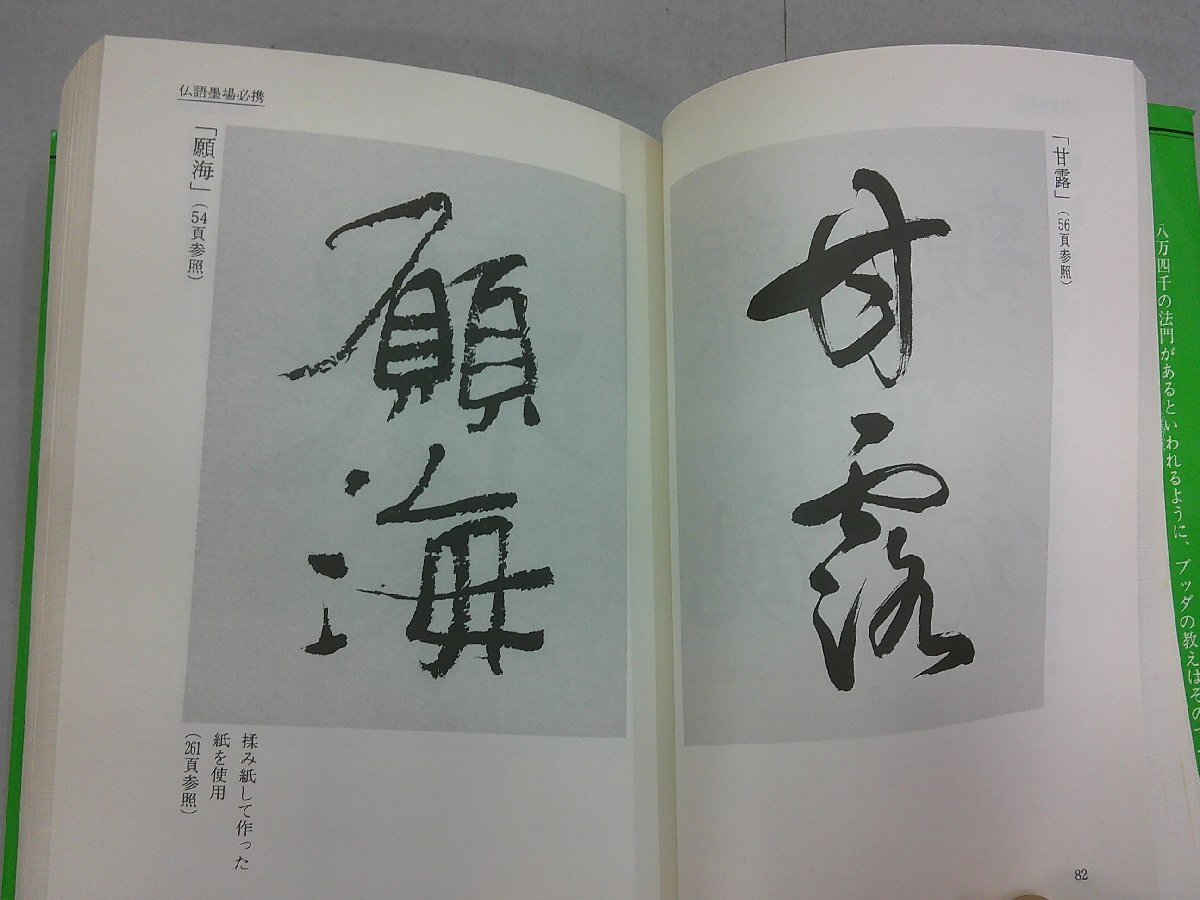 「甘露」(56頁参照)
甘露
82
仏語墨場必携
「願海」(54頁参照)
願海
揉み紙して作った
紙を使用
(261頁参照)
八万四千の法門があるといわれるように、ブッダの教えはその